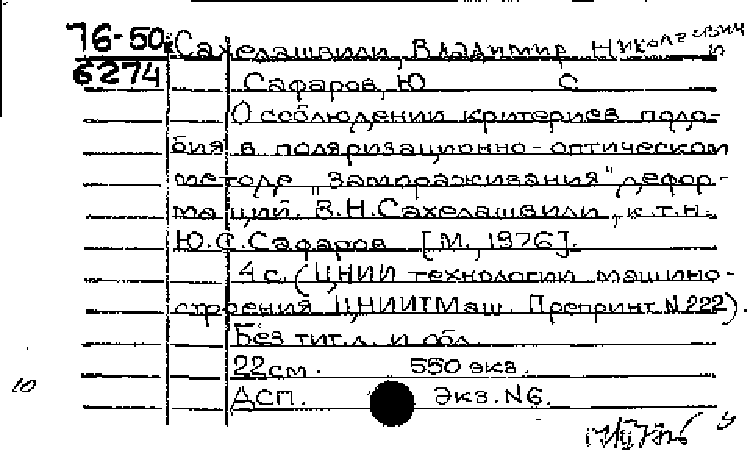 76-50 Сахелашвили, Владимир Николаевич и
6274 Сафаров, Ю С
О соблюдении критериев подо-
бия в поляризационно-оптическом
методе „Замораживания" дефор-
маций. В.Н.Сахелашвили, к.т.н.
Ю.С.Сафаров [М., 1976].
4 с. (ЦНИИ технологии машино-
строения ЦНИИТМаш. Препринт. N 222).
Без тит.л. и обл.
22 см. 550 экз.
10
ДСП. Экз. N6.